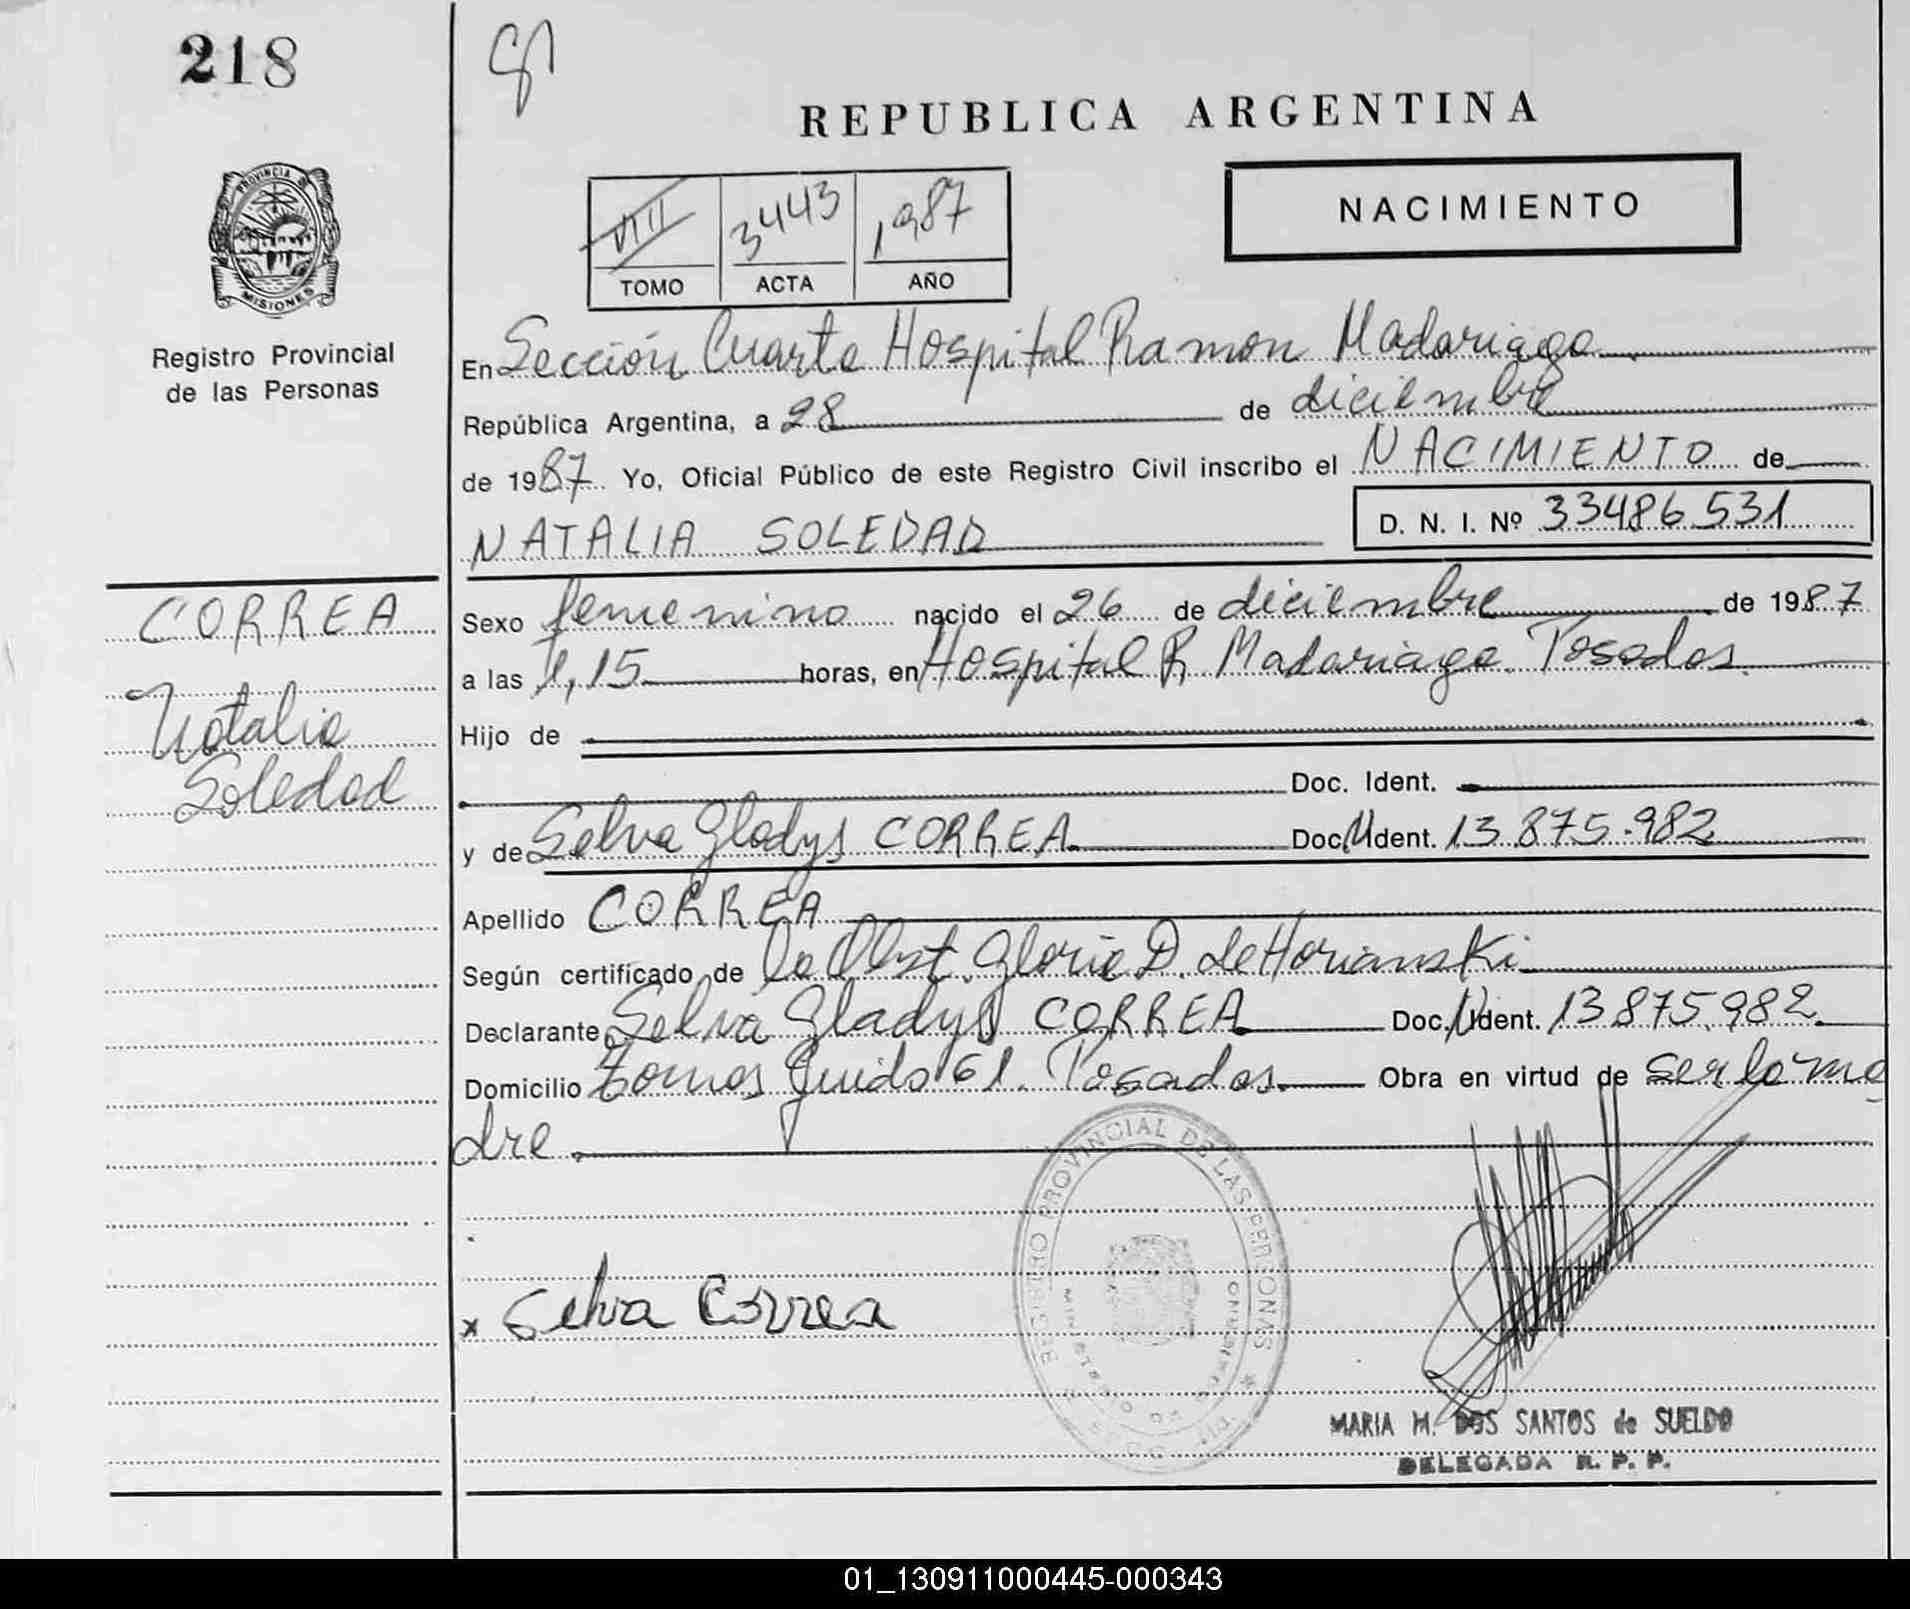 218
REPUBLICA ARGENTINA
PROVINCIA D
MISIONES
Registro Provincial
de las Personas
VIII 3443 1987
TOMO ACTA AÑO
NACIMIENTO
En Sección Cuarta Hospital Ramon Madariaga
República Argentina, a 28 de diciembre
de 1987 Yo, Oficial Público de este Registro Civil inscribo el NACIMIENTO de
NATALIA SOLEDAD D. N. I. Nº 33486531
CORREA
Natalia
Soledad
Sexo femenino nacido el 26 de diciembre de 1987
a las 1,15 horas, en Hospital R Madariaga Posadas.
Hijo de
Doc. Ident.
y de Selva Gladys CORREA Doc. Ident. 13.875.982
Apellido CORREA
Según certificado de la Obst. Gloria D. de Horianski
Declarante Selva Gladys CORREA Doc. Ident. 13.875.982
Domicilio Tomas Guido 61. Posadas. Obra en virtud de ser la ma
dre
REGISTRO PROVINCIAL DE LAS PERSONAS
MINISTERIO DE GOBIERNO
x Selva Correa
MARIA M. DOS SANTOS de SUELDO
DELEGADA R. P. P.
01_130911000445-000343